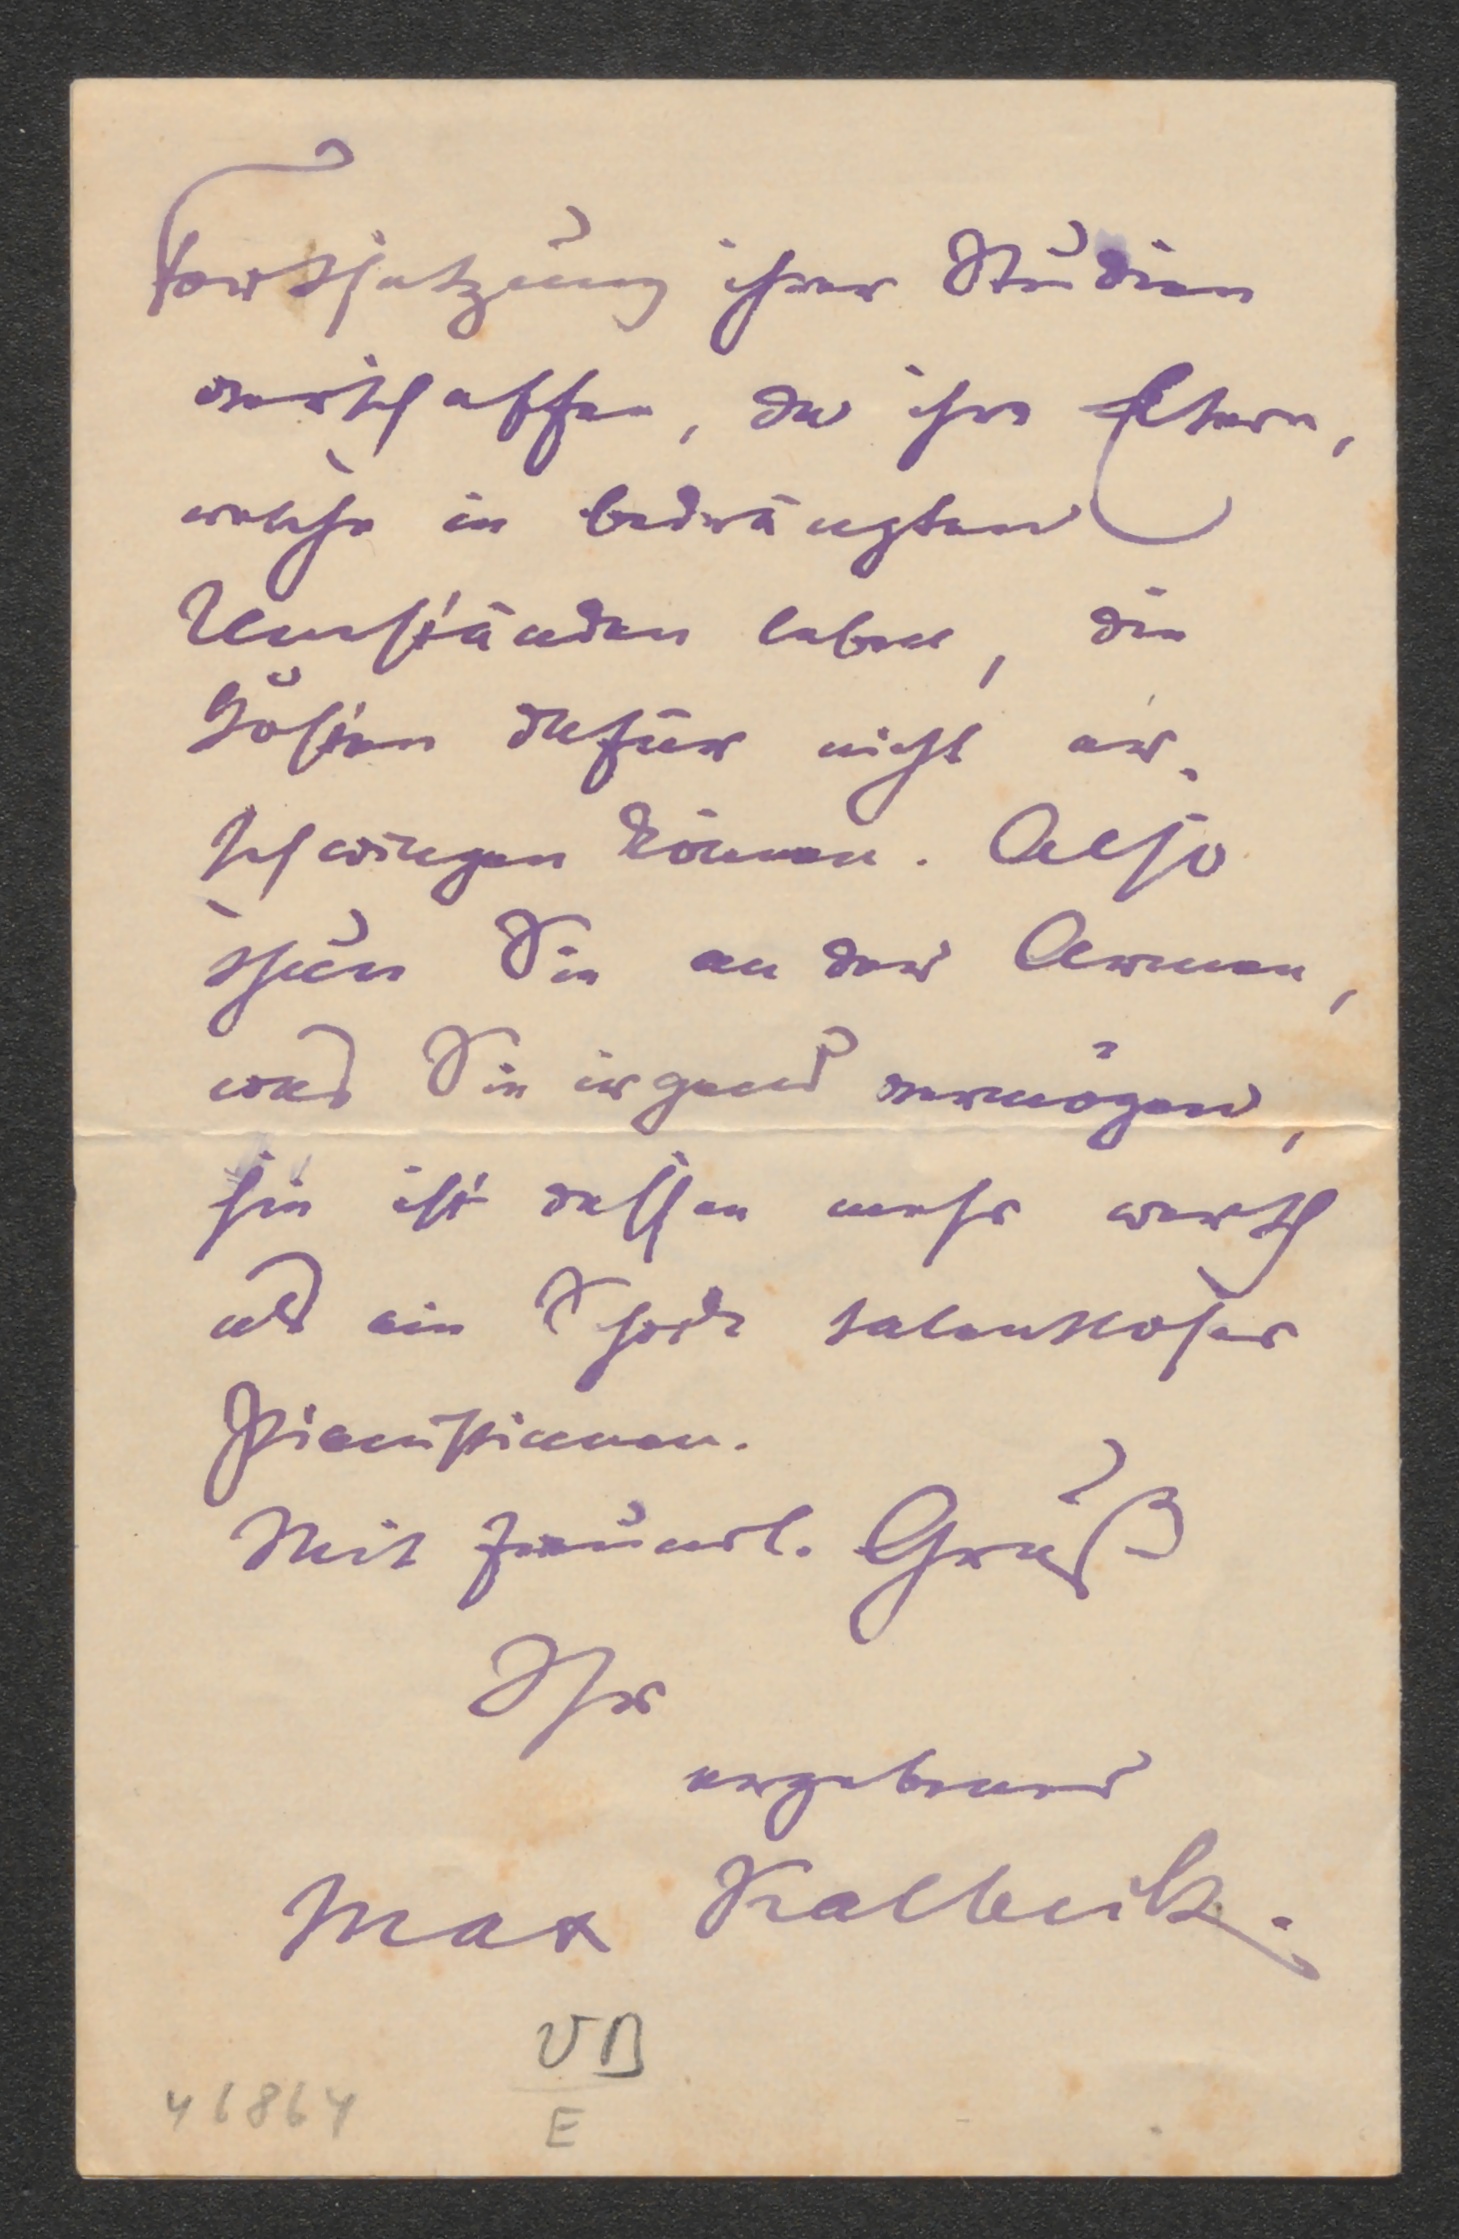 Fortsetzung ihrer Studien
verschaffen, da ihre Eltern,
welche in bedrängten
Umständen leben, die
Kosten dafür nicht er-
schwingen können. Also
thun Sie an der Armen,
was Sie irgend vermögen,
sie ist dessen mehr werth
als ein Schock talentloser
Pianistinnen.
Mit freundl. Gruß
Ihr
ergebener
Max Kalbeck.
VB
E
46864